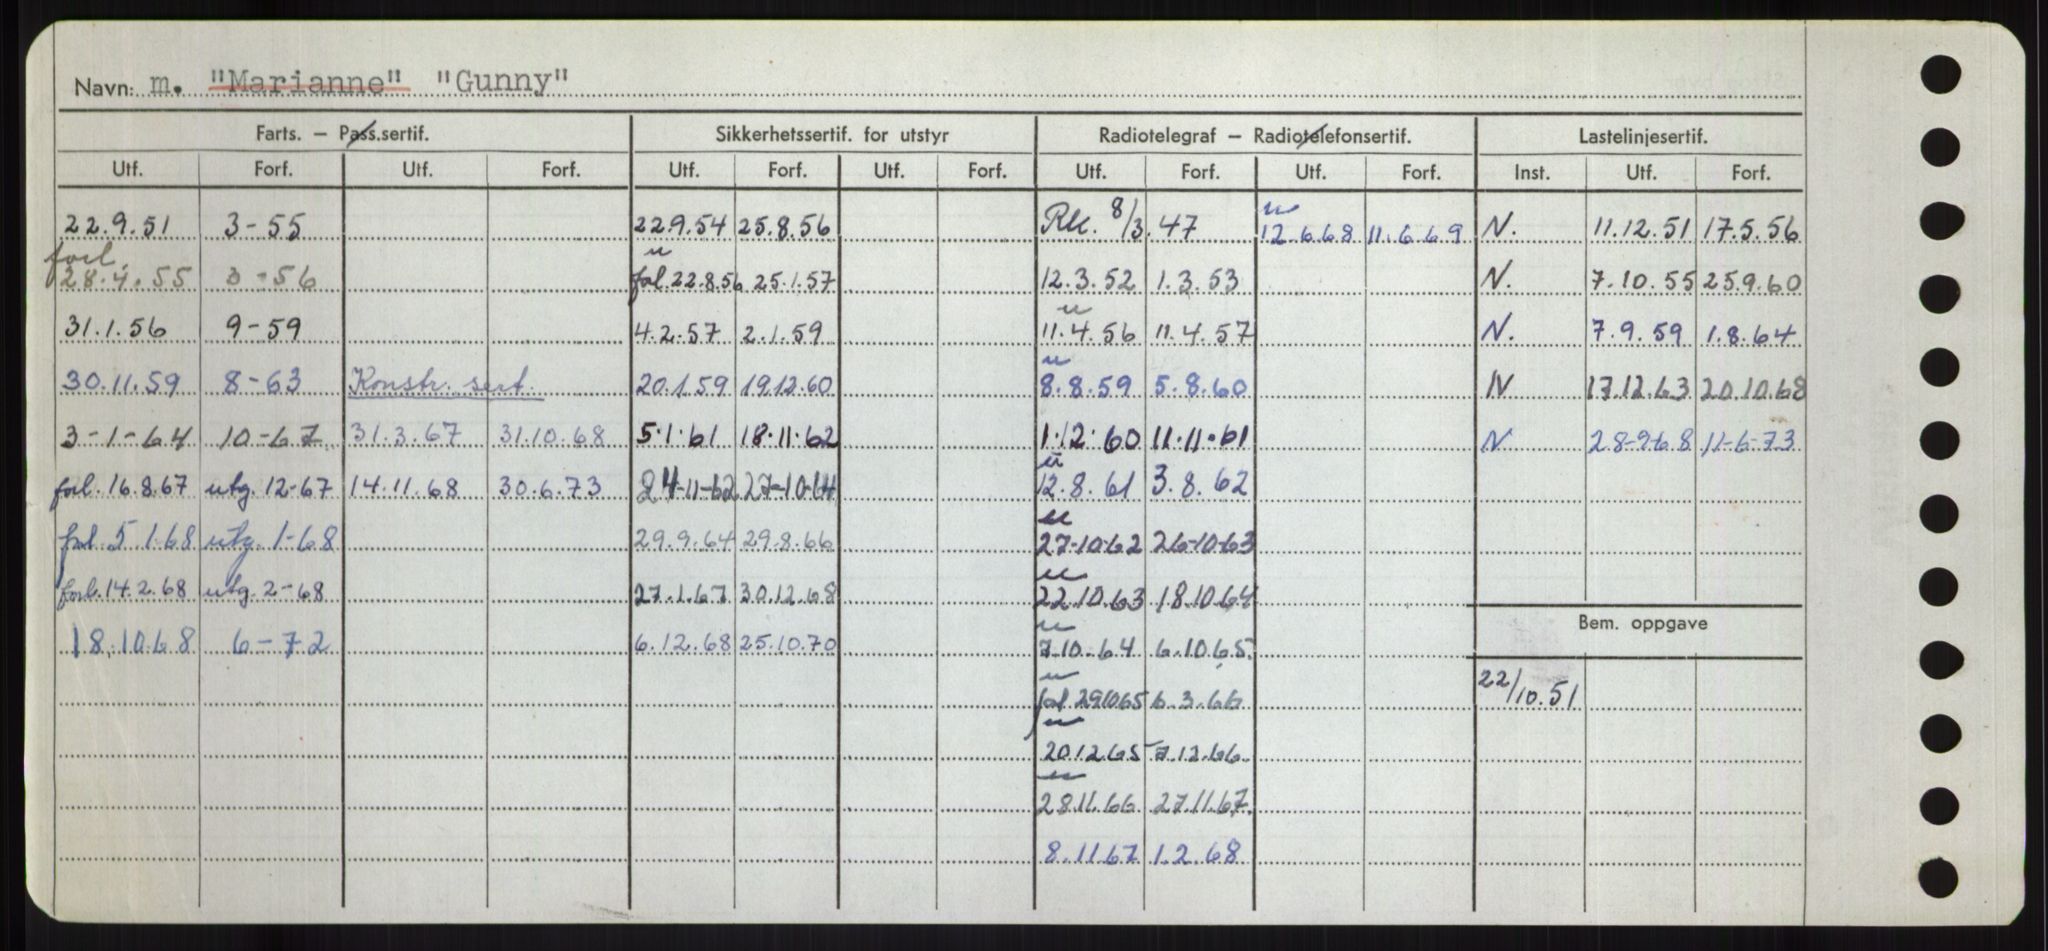 Navn: m. "Marianne" "Gunny"
Farts. — Pass.sertif. Sikkerhetssertif. for utstyr Radiotelegraf — Radiotelefonsertif. Lastelinjesertif.
Utf. Forf. Utf. Forf. Utf. Forf. Utf. Forf. Utf. Forf. Utf. Forf. Inst. Utf. Forf.
22.9.51 3-55 22.9.54 25.8.56 8/3.47 12.6.68 11.6.69 N. 11.12.51 17.5.56
forl. 28.4.55 3-56 22.8.56 25.1.57 12.3.52 1.3.53 N. 7.10.55 25.9.60
31.1.56 9-59 4.2.57 2.1.59 11.4.56 11.4.57 N. 7.9.59 1.8.64
30.11.59 8-63 Konstr. sert. 20.1.59 19.12.60 8.8.59 5.8.60 N 17.12.63 20.10.68
3-1-64 10-67 31.3.67 31.10.68 5.1.61 18.11.62 1.12.60 11.11.61 N 28-9-68 11-6-73
forl. 16.8.67 utg. 12-67 14.11.68 30.6.73 24-11-62 27-10-64 12.8.61 3.8.62
forl. 5.1.68 utg. 1-68 29.9.64 29.8.66 27-10-62 26-10-63
forl. 14.2.68 utg. 2-68 27.1.67 30.12.68 22.10.63 18.10.64
18.10.68 6-72 6.12.68 25.10.70 7.10.64 6.10.65
Bem. oppgave
forl. 29.10.65 6.3.66 22/10.51
20.12.65 7.12.66
28.11.66 27.11.67
8.11.67 1.2.68